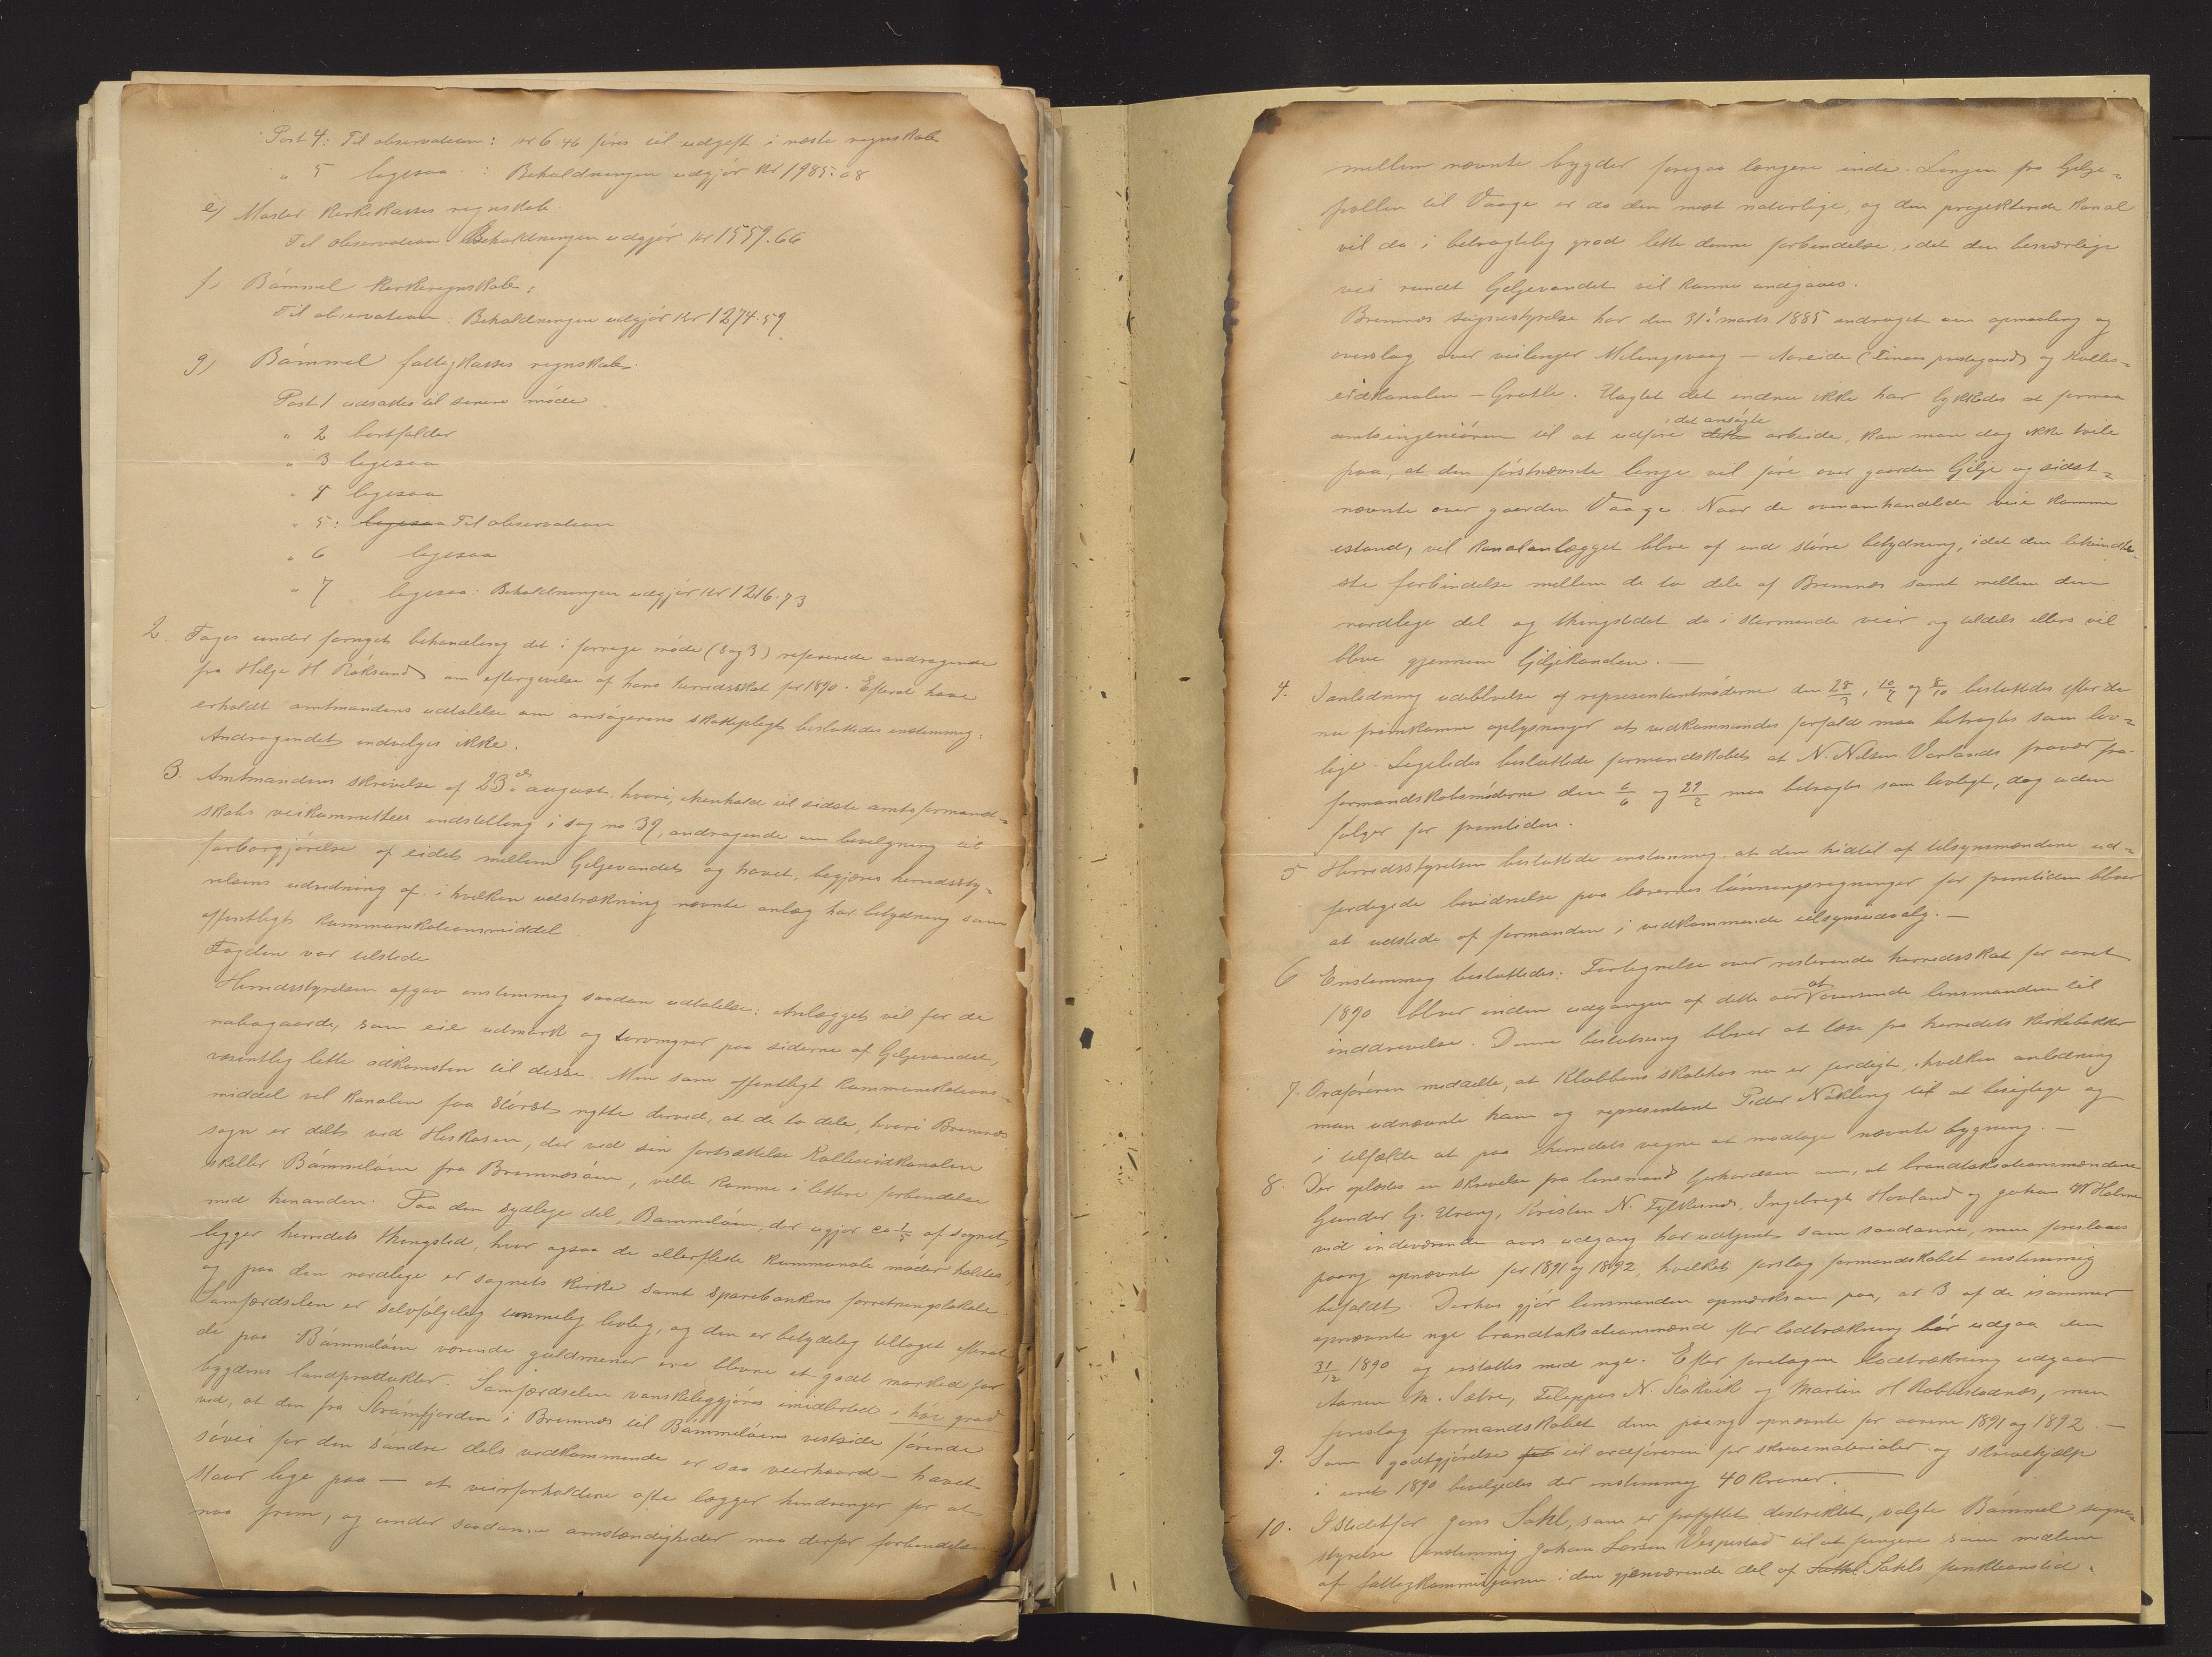 Post 4: Til observation: kr 6 46 føres til udgift i næste regnskab
" 5 ligesaa : Beholdningen udgjør kr 1985.08
e) Moster kirkekasses regnskab.
Til observation Beholdningen udgjør kr 1559.66
f) Bømmel kirkeregnskab:
Til observation: Beholdningen udgjør kr 1274.59
g) Bømmel fattigkasses regnskab.
Post 1 udsattes til senere møde
" 2 bortfalder
" 3 ligesaa
" 4 ligesaa
" 5: ligesaa Til observation
" 6 ligesaa
" 7 ligesaa: Beholdningen udgjør kr 1216.73
2. Toges under fornyet behandling det i forrige møde (sag 3) refererede andragende
fra Helge H Røksund om eftergivelse af hans herredsskat for 1890. Efterat have
erholdt amtmandens udtalelse om ansøgerens skattepligt besluttedes enstemmig:
Andragendet indvilges ikke.
3. Amtmandens skrivelse af 23de august, hvori, ihenhold til sidste amtsformand-
skabs veikommittees indstilling i sag no 37, andragende om bevilgning til
farbargjørelse af eidet mellem Giljevandet og havet, begjæres herredssty-
relsens udredning af i hvilken udstrækning nævnte anlæg har betydning som
offentligt kommunikationsmiddel
Fogden var tilstede
Herredsstyrelsen afgav enstemmig saadan udtalelse: Anlægget vil for de
nabogaarde, som eie udmark og torvmyrer paa siderne af Giljevandet,
væsentlig lette adkomsten til disse. Men som offentligt kommunikations-
middel vil kanalen faa størst nytte derved, at de to dele, hvori Bremnes
sogn er delt ved Hiskosen, der ved sin fortsættelse Kulleseidkanalen
skiller Bømmeløen fra Bremnesøen, ville komme i lettere forbindelse
med hinanden. Paa den sydlige del, Bømmeløen, der ugjør ca 1/5 af sognet,
ligger herredets thingsted, hvor ogsaa de allerfleste kommunale møder holdes,
og paa den nordlige er sognets kirke samt sparebankens forretningslokale.
Samfærdselen er selvfølgelig temmelig livlig, og den er betydelig tiltaget efterat
de paa Bømmeløen værende guldminer ere blevne et godt marked for
bygdens landprodukter. Samfærdselen vanskeliggjøres imidlertid i høi grad
ved, at den fra Strømfjorden i Bremnes til Bømmeløens vestside førende
søvei for den søndre dels vedkommende er saa veirhaard – havet
staar lige paa – at veirforholdene ofte lægger hindringer for at
naa frem, og under saadanne omstændigheder maa derfor forbindelsen
mellem nævnte bygder foregaa længere inde. Linjen fra Gilje-
pollen til Vaage er da den mest naturlige, og den projekterede kanal
vil da i betragtelig grad lette denne forbindelse, idet den besværlige
vei rundt Giljevandet vil kunne undgaaes.
Bremnes sognestyrelse har den 31te marts 1885 andraget om opmaaling og
overslag over veilinjer Mælingsvaag – Aareide (Finaas prestegaard) og Kulles-
eidkanalen – Grutle. Uagtet det endnu ikke har lykkedes at formaa
amtsingeniøren til at udføre dette det ansøgte arbeide, kan man dog ikke tvile
paa, at den førstnævnte linje vil føre over gaarden Gilje og sidst-
nævnte over gaarden Vaage. Naar de ovenomhandlede veie komme
istand, vil kanalanlægget blive af end større betydning, idet den bekvemme-
ste forbindelse mellem de to dele af Bremnes samt mellem den
nordlige del og thingstedet da i stormende veir og tildels ellers vil
blive gjennem Giljekanalen. –
4. I anledning udeblivelse af representantmøderne den 28/3, 10/7 og 8/10 besluttedes efter de
nu fremkomne oplysninger at vedkommendes forfald maa betragtes som lov-
lige. Ligeledes besluttede formandskabet at N. Nilsen Vorlands fravær fra
formandskabsmøderne den 6/6 og 29/7 maa betragtes som lovligt, dog uden
følger for fremtiden.
5 Herredsstyrelsen besluttede enstemmig at den hidtil af tilsynsmændene ud-
ferdigede bevidnelse paa lærernes lønningsregninger for fremtiden bliver
at udstede af formanden i vedkommende tilsynsudvalg. –
6 Enstemmig besluttedes: Fortegnelse over resterende herredsskat for aaret
1890 bliver inden udgangen af dette aar at oversende lensmanden til
inddrivelse. Denne beslutning bliver at læse fra herredets kirkebakker
7. Ordføreren meddelte, at Klubbens skolehus nu er ferdigt, i hvilken anledning
man udnævnte ham og representant Peder Nøkling til at besigtige og
i tilfælde at paa herredets vegne at modtage nævnte bygning. –
8. Der oplæstes en skrivelse fra lensmand Gerhardsen om, at brandtaksationsmændene
Gunder G. Urang, Kristen N. Fylkesnes, Ingebrigt Hovland og Johan W Holme
ved indeværende aars udgang har udtjent som saadanne, men foreslaaes
paany opnævnte for 1891 og 1892, hvilket forslag formandskabet enstemmig
bifaldt. Derhos gjør lensmanden opmærksom paa, at 3 af de isommer
opnævnte nye brandtaksationsmænd efter lodtrækning bør udgaa den
31/12 1890 og erstattes med nye. Efter foretagen lodtrækning udgaar
Aanen M. Sætre, Filippus N. Stokvik og Martin H Robbestadnes, men
foreslog formandskabet dem paany opnævnte for aarene 1891 og 1892. –
9. Som godtgjørelse for til ordføreren for skrivematerialer og skrivehjælp
i aaret 1890 bevilgedes der enstemmig 40 kroner. –
10. I stedetfor Jens Sahl, som er fraflyttet distriktet, valgte Bømmel sogne-
styrelse enstemmig Johan Larsen Vespestad til at fungere som medlem
af fattigkommisjonen i den gjenværende del af Sahl Sahls funktionstid.